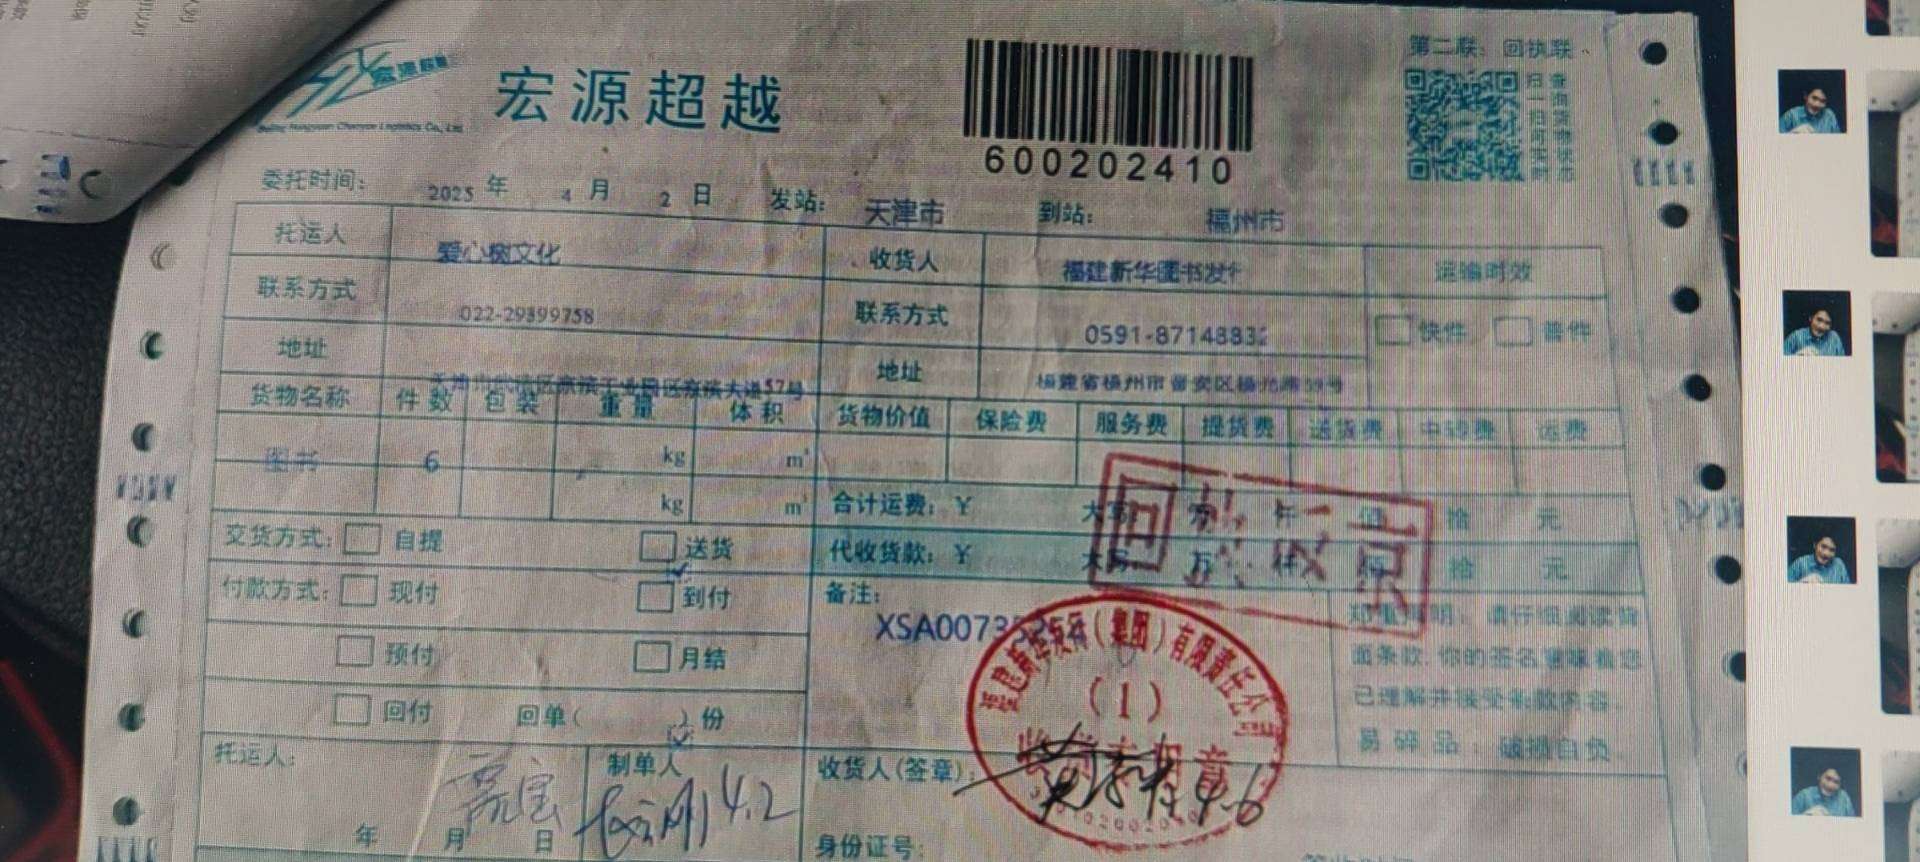 第二联：回执联
宏源超越
600202410
委托时间： 2025 年 4 月 2 日 发站： 天津市 到站： 福州市
托运人 爱心树文化 收货人 福建新华图书发行 运输时效
联系方式 022-29399758 联系方式 0591-8714883 快件 普件
地址 地址 福建省福州市晋安区
货物名称 件数 包装 重量 体积 货物价值 保险费 服务费 提货费 送货费 中转费 运费
图书 6 kg m³
kg m³ 合计运费：¥ 大写： 万 仟 佰 拾 元
交货方式： 自提 送货 代收货款：¥ 大写： 万 仟 佰 拾 元
付款方式： 现付 到付 备注：
XSA0073
预付 月结
回付 回单（ ）份
郑重声明：请仔细阅读背
面条款，你的签名意味着您
已理解并接受条款内容。
易碎品：破损自负
福建新华发行（集团）有限责任公司
（1）
托运人： 制单人 4.2 收货人（签章）： 4.6
年 月 日 身份证号：